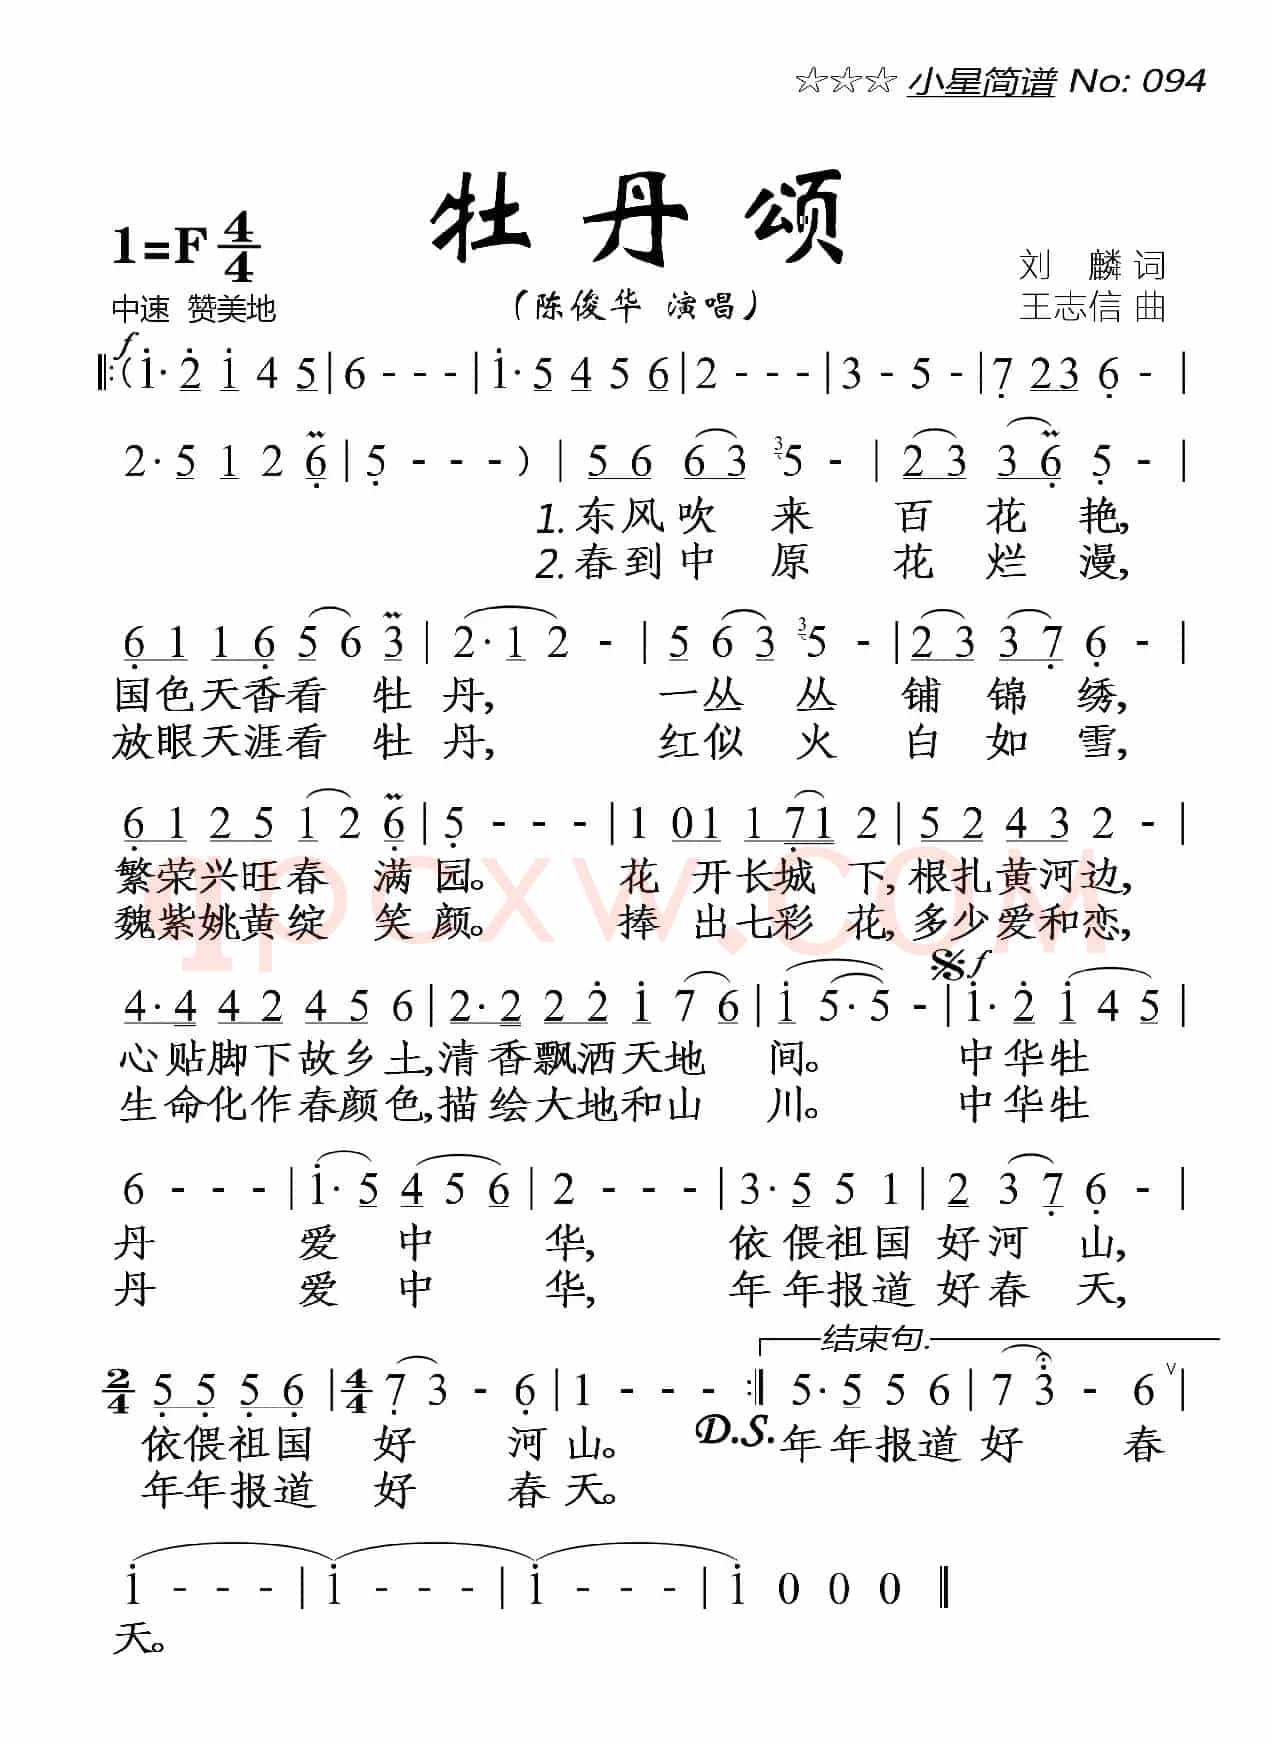 ☆☆☆ 小星简谱 No: 094
牡丹颂
1=F 4/4
中速 赞美地
(陈俊华 演唱)
刘 麟 词
王志信 曲
f
‖:(1̇· 2̇ 1̇ 4 5 | 6 - - - | 1̇· 5 4 5 6 | 2 - - - | 3 - 5 - | 7̣ 2 3 6̣ - |
2· 5 1 2 6̣ | 5̣ - - - ) | 5 6 6 3 3 5 - | 2 3 3 6̣ 5̣ - |
1. 东风吹 来 百 花 艳,
2. 春到中 原 花 烂 漫,
6̣ 1 1 6̣ 5 6 3 | 2· 1 2 - | 5 6 3 3 5 - | 2 3 3 7̣ 6̣ - |
国色天香看 牡 丹, 一丛 丛 铺 锦 绣,
放眼天涯看 牡 丹, 红似 火 白 如 雪,
6̣ 1 2 5 1 2 6̣ | 5̣ - - - | 1 0 1 1 7̣ 1 2 | 5 2 4 3 2 - |
繁荣兴旺春 满 园。 花 开长城 下, 根扎黄河边,
魏紫姚黄绽 笑 颜。 捧 出七彩 花, 多少爱和恋,
𝄋 f
4· 4 4 2 4 5 6 | 2· 2 2 2̇ 1̇ 7 6 | 1̇ 5· 5 - | 1̇· 2̇ 1̇ 4 5 |
心贴脚下故乡土,清香飘洒天地 间。 中华牡
生命化作春颜色,描绘大地和山 川。 中华牡
6 - - - | 1̇· 5 4 5 6 | 2 - - - | 3· 5 5 1 | 2 3 7̣ 6̣ - |
丹 爱 中 华, 依偎祖国 好河 山,
丹 爱 中 华, 年年报道 好春 天,
结束句.
2/4 5̣ 5̣ 5̣ 6̣ | 4/4 7̣ 3 - 6̣ | 1 - - - :‖ 5· 5 5 6 | 7 3̇ - 6 ∨ |
D.S.
依偎祖国 好 河 山。 年年报道 好 春
年年报道 好 春 天。
1̇ - - - | 1̇ - - - | 1̇ - - - | 1̇ 0 0 0 ‖
天。
qpcxw.com